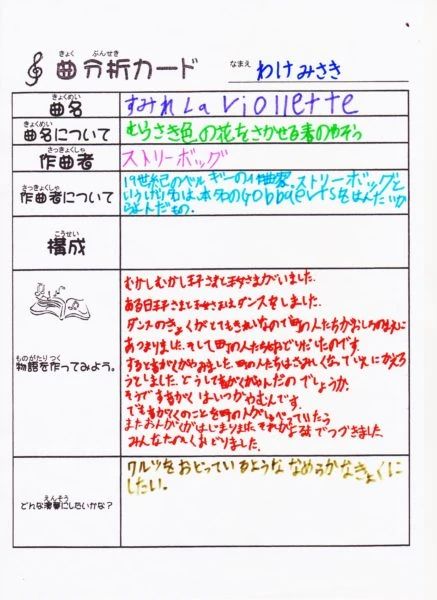 きょく ぶんせき
曲分析カード
なまえ
わけみさき
きょくめい
曲名
すみれ La Viollette
きょくめい
曲名について
むらさき色の花をさかせる春のやそう
さっきょくしゃ
作曲者
ストリーボッグ
さっきょくしゃ
作曲者について
19世紀のベルギーの作曲家。ストリーボッグと
いうげい名は、本名のGobbaertsを
こうせい
構成
ものがたり つく
物語を作ってみよう。
むかしむかし王子さまと王女さまがいました。
ある日王子さまと王女さまはダンスをしました。
ダンスのきょくがとてもきれいなので町の人たちがおしろのまえに
あつまりました。そして町の人たち
すると音がくがやみました。町の人たちはさみしくなっていえにかえろ
うとしました。どうして音がくがやんだのでしょうか。
そうです音がくはいつかやむんです。
でも音がくのことを町の人がしゃべっていたら
またおんがくがはじまりました。それがよるまでつづきました。
みんなたのしくおどりました。
えんそう
どんな演奏にしたいかな？
ワルツをおどっているようななめらかなきょくに
したい。